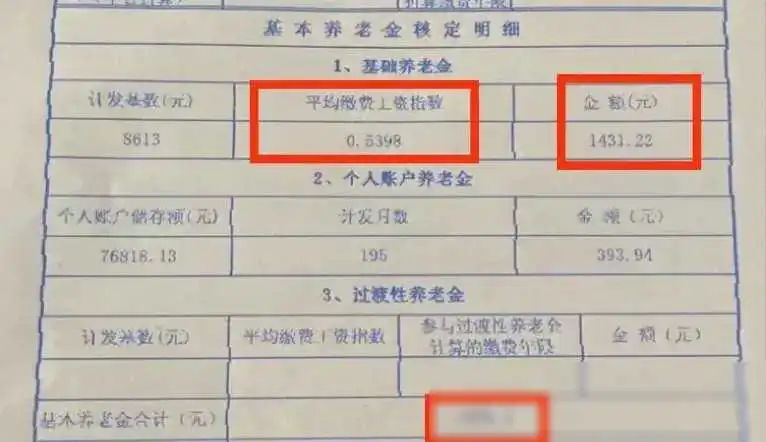 基本养老金核定明细
1、基础养老金
计发基数(元) 平均缴费工资指数 金额(元)
8613 0.5398 1431.22
2、个人账户养老金
个人账户储存额(元) 计发月数 金额(元)
76818.13 195 393.94
3、过渡性养老金
计发基数(元) 平均缴费工资指数 参与过渡性养老金 金额(元)
计算的缴费年段
基本养老金合计(元)